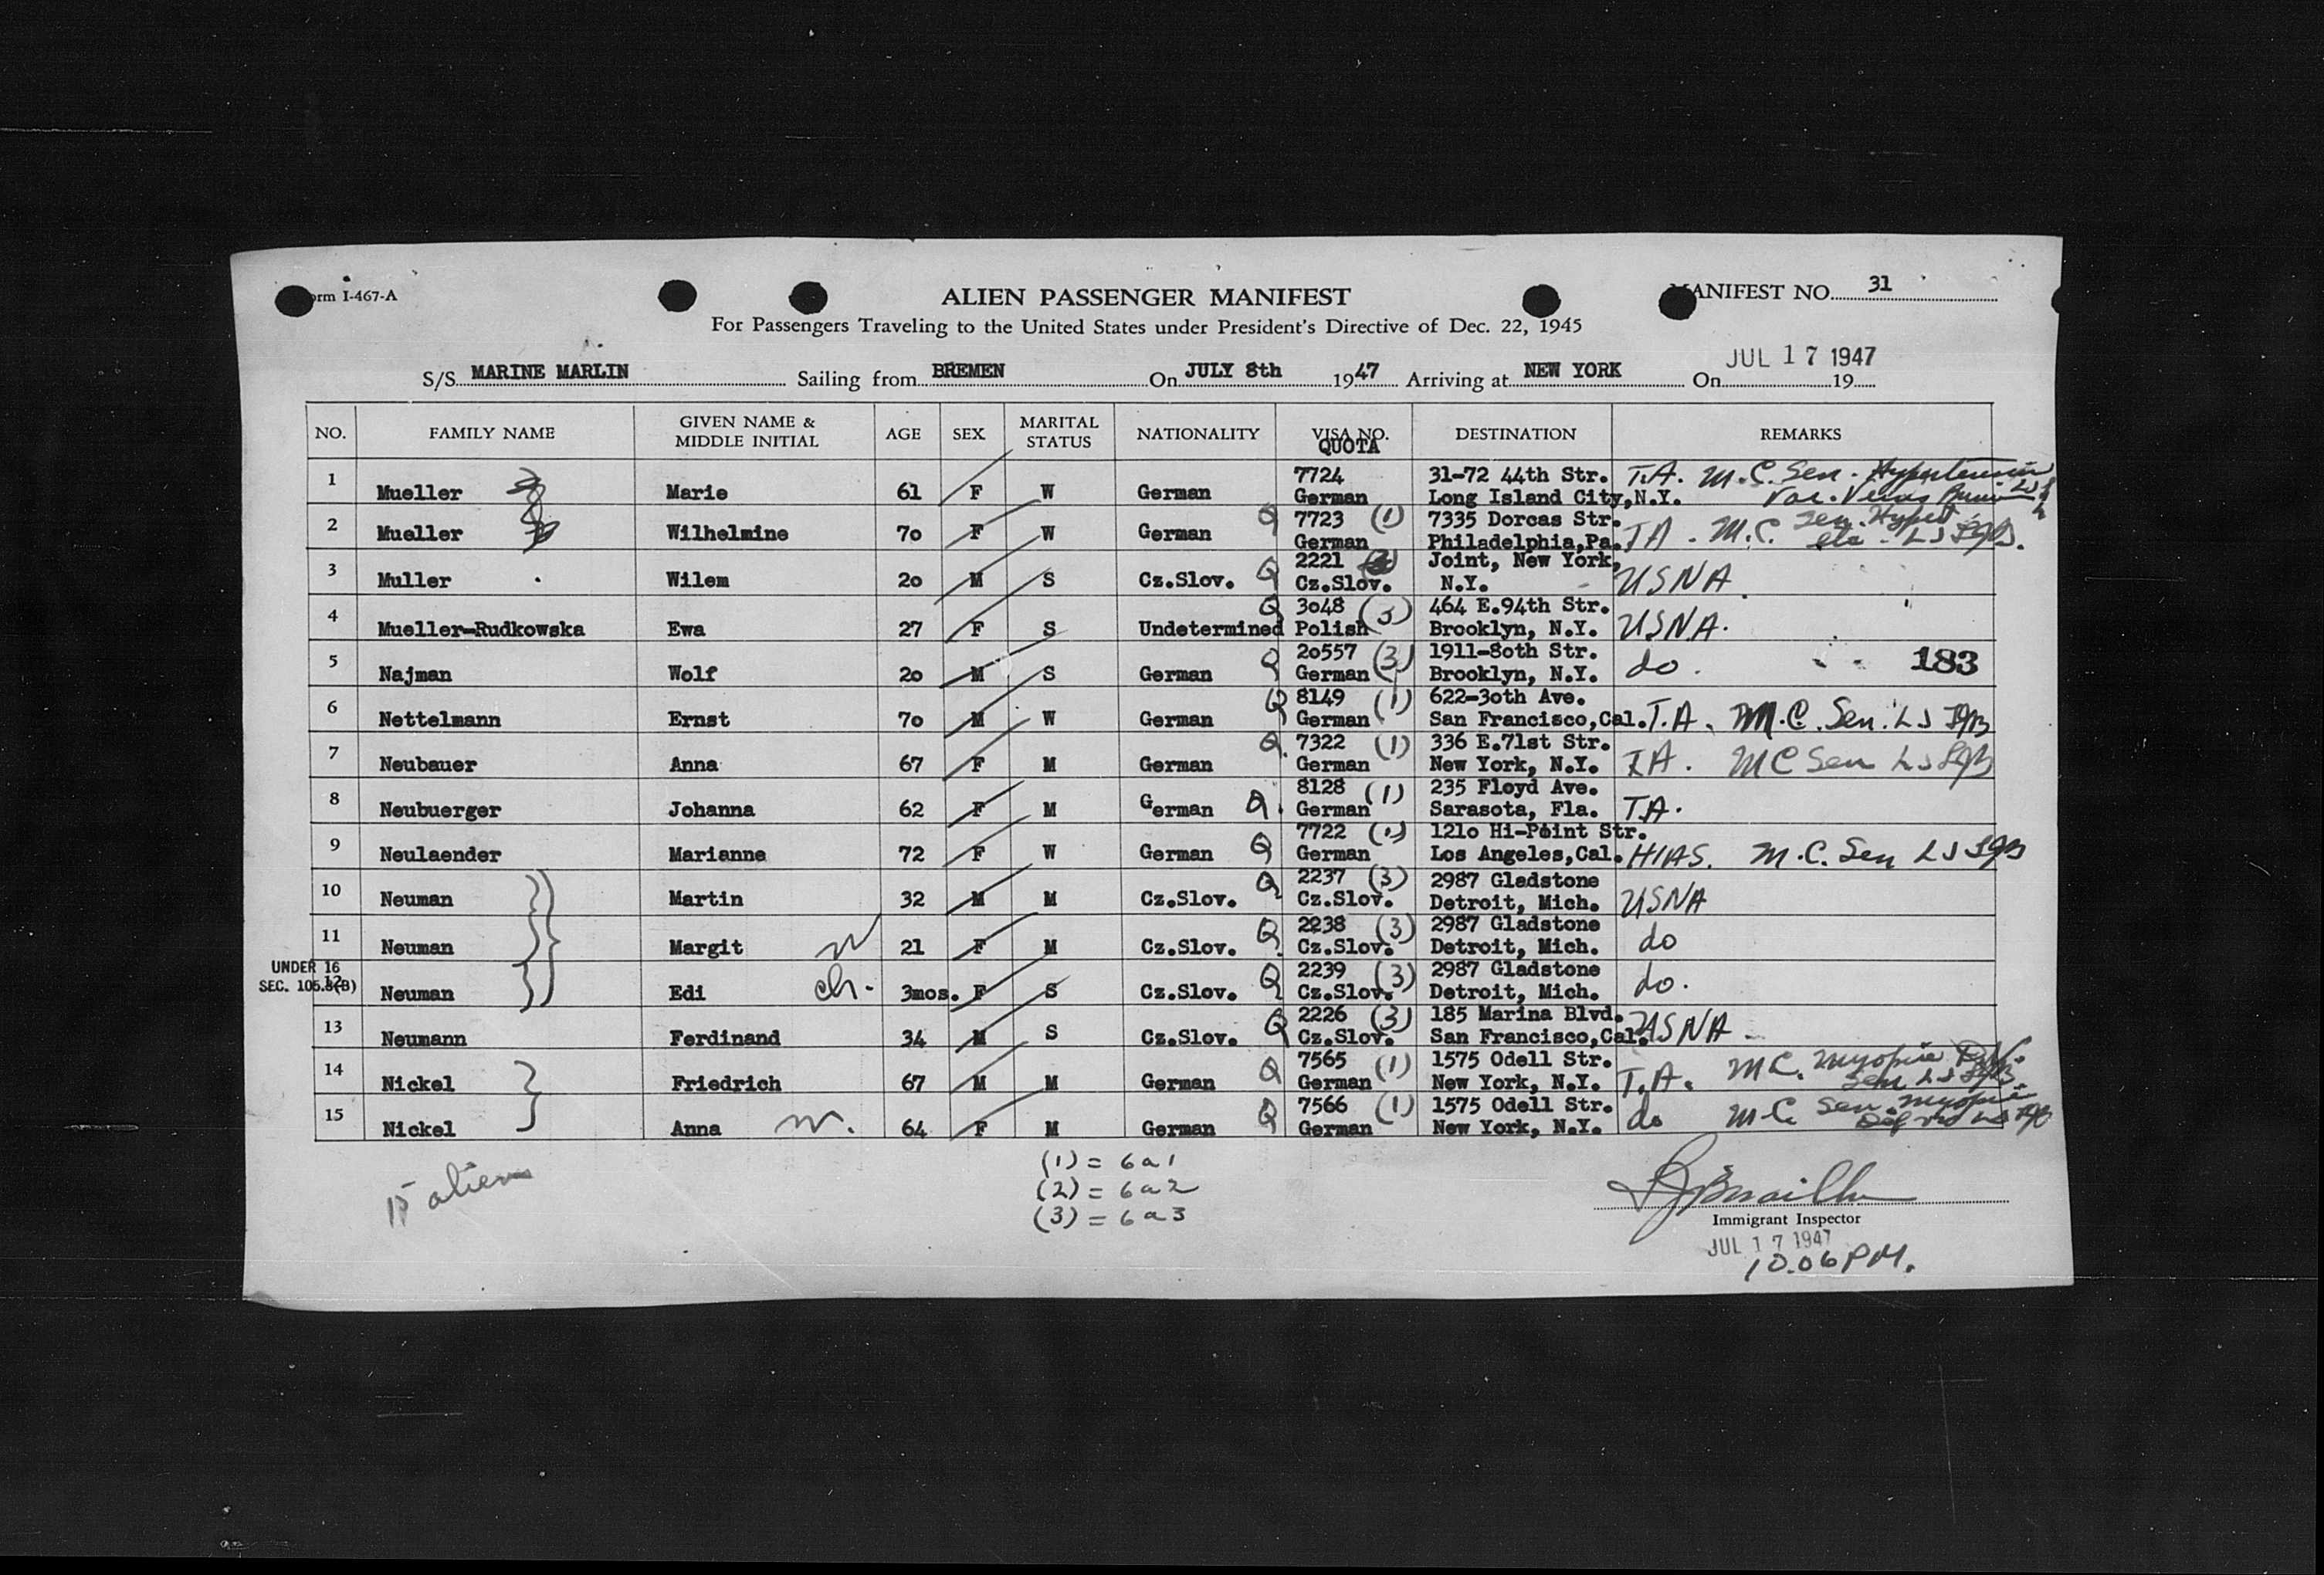 Form I-467-A
ALIEN PASSENGER MANIFEST
MANIFEST NO. 31
For Passengers Traveling to the United States under President's Directive of Dec. 22, 1945
JUL 17 1947
S/S MARINE MARLIN Sailing from BREMEN On JULY 8th 1947 Arriving at NEW YORK On 19
NO. FAMILY NAME GIVEN NAME & MIDDLE INITIAL AGE SEX MARITAL STATUS NATIONALITY VISA NO. QUOTA DESTINATION REMARKS
1 Mueller Marie 61 F W German 7724 German 31-72 44th Str. Long Island City, N.Y. T.A. M.C. Sen. Hypertension
2 Mueller Wilhelmine 7o F W German Q 7723 (1) German 7335 Dorcas Str. Philadelphia,Pa. TA. M.C. Sen. Hypert. etc.
3 Muller Wilem 2o M S Cz.Slov. Q 2221 Cz.Slov. Joint, New York, N.Y. USNA
4 Mueller-Rudkowska Ewa 27 F S Undetermined Q 3o48 (3) Polish 464 E.94th Str. Brooklyn, N.Y. USNA.
5 Najman Wolf 2o M S German Q 2o557 (3) German 1911-8oth Str. Brooklyn, N.Y. do. 183
6 Nettelmann Ernst 7o M W German Q 8149 (1) German 622-3oth Ave. San Francisco,Cal. T.A. M.C. Sen.
7 Neubauer Anna 67 F M German Q. 7322 (1) German 336 E.71st Str. New York, N.Y. TA. MC Sen
8 Neubuerger Johanna 62 F M German Q. 8128 (1) German 235 Floyd Ave. Sarasota, Fla. T.A.
9 Neulaender Marianne 72 F W German Q 7722 (1) German 121o Hi-Point Str. Los Angeles,Cal. HIAS. M.C. Sen
10 Neuman Martin 32 M M Cz.Slov. Q 2237 (3) Cz.Slov. 2987 Gladstone Detroit, Mich. USNA
11 Neuman Margit W 21 F M Cz.Slov. Q 2238 (3) Cz.Slov. 2987 Gladstone Detroit, Mich. do
UNDER 16
SEC. 105.3(B)
12 Neuman Edi ch. 3mos. F S Cz.Slov. Q 2239 (3) Cz.Slov. 2987 Gladstone Detroit, Mich. do.
13 Neumann Ferdinand 34 M S Cz.Slov. Q 2226 (3) Cz.Slov. 185 Marina Blvd. San Francisco,Cal. USNA
14 Nickel Friedrich 67 M M German Q 7565 (1) German 1575 Odell Str. New York, N.Y. T.A. MC. Myopia Sen
15 Nickel Anna W. 64 F M German Q 7566 (1) German 1575 Odell Str. New York, N.Y. do M.C. Sen. Myopia
15 aliens
(1) = 6a1
(2) = 6a2
(3) = 6a3
Immigrant Inspector
JUL 17 1947
10.06 PM.